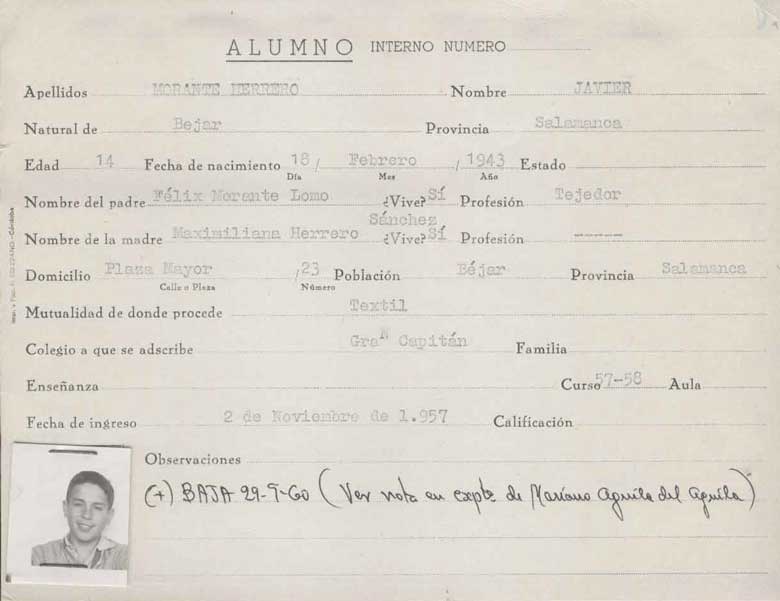 ALUMNO INTERNO NUMERO
Apellidos MORANTE HERRERO Nombre JAVIER
Natural de Bejar Provincia Salamanca
Edad 14 Fecha de nacimiento 18 / Febrero / 1943 Estado
Día Mes Año
Nombre del padre Félix Morante Lomo ¿Vive? Sí Profesión Tejedor
Sánchez
Nombre de la madre Maximiliana Herrero ¿Vive? Sí Profesión -----
Domicilio Plaza Mayor / 23 Población Béjar Provincia Salamanca
Calle o Plaza Número
Mutualidad de donde procede Textil
Colegio a que se adscribe Gran Capitán Familia
Enseñanza Curso 57-58 Aula
Fecha de ingreso 2 de Noviembre de 1.957 Calificación
Observaciones
(+) BAJA 29-9-60 (Ver nota en expte de Mariano Aguila del Aguila)